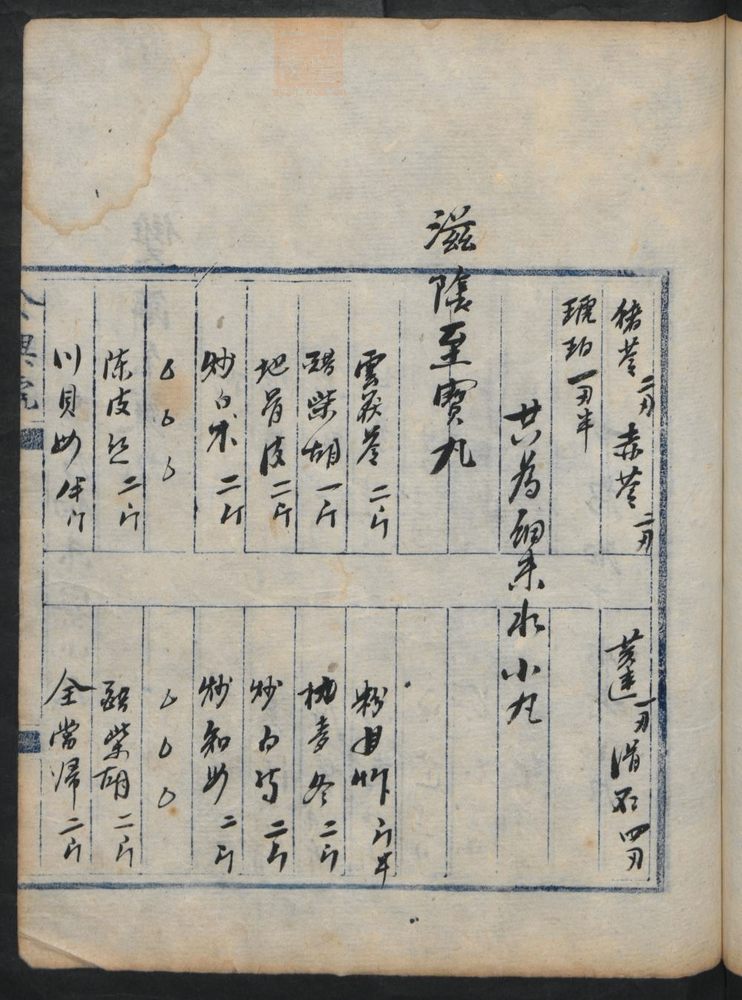 猪苓 二刃 赤苓 二刃 萹 一刃 滑石 四刃
琥珀 一刃半
共為細末水小丸
滋陰至寶丸
雲茯苓 二斤 粉甘草 斤半
醋柴胡 一斤 杭麦冬 二斤
地骨皮 二斤 炒白芍 二斤
炒白朮 二斤 炒知母 二斤
陈皮 二斤 醋柴胡 二斤
川貝母 半斤 全當歸 二斤